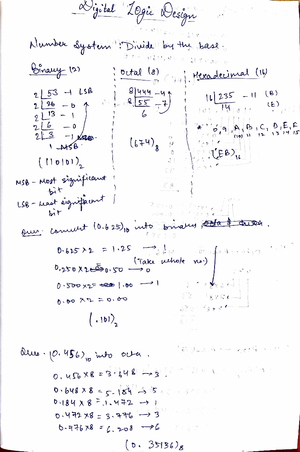 Digital Logic Design
Number System : Divide by the base.
Binary (2)
2 | 53 - 1 LSB
2 | 26 - 0
2 | 13 - 1
2 | 6 - 0
2 | 3 - 1
1 MSB
(110101)₂
MSB - Most significant
bit
LSB - Least significant
bit
Octal (8)
8 | 444 - 4
8 | 55 - 7
6
(674)₈
Hexadecimal (16)
16 | 235 - 11 (B)
14 (E)
* 0, 9, A, B, C, D, E, F
10 11 12 13 14 15
(EB)₁₆
Ques: convert (0.625)₁₀ into binary
0.625 x 2 = 1.25 → 1
(Take whole no.)
0.250 x 2 = 0.50 → 0
0.500 x 2 = 1.00 → 1
0.00 x 2 = 0.00
(.101)₂
Ques - (0.456)₁₀ into octa.
0.456 x 8 = 3.648 → 3
0.648 x 8 = 5.184 → 5
0.184 x 8 = 1.472 → 1
0.472 x 8 = 3.776 → 3
0.776 x 8 = 6.208 → 6
(0.35136)₈